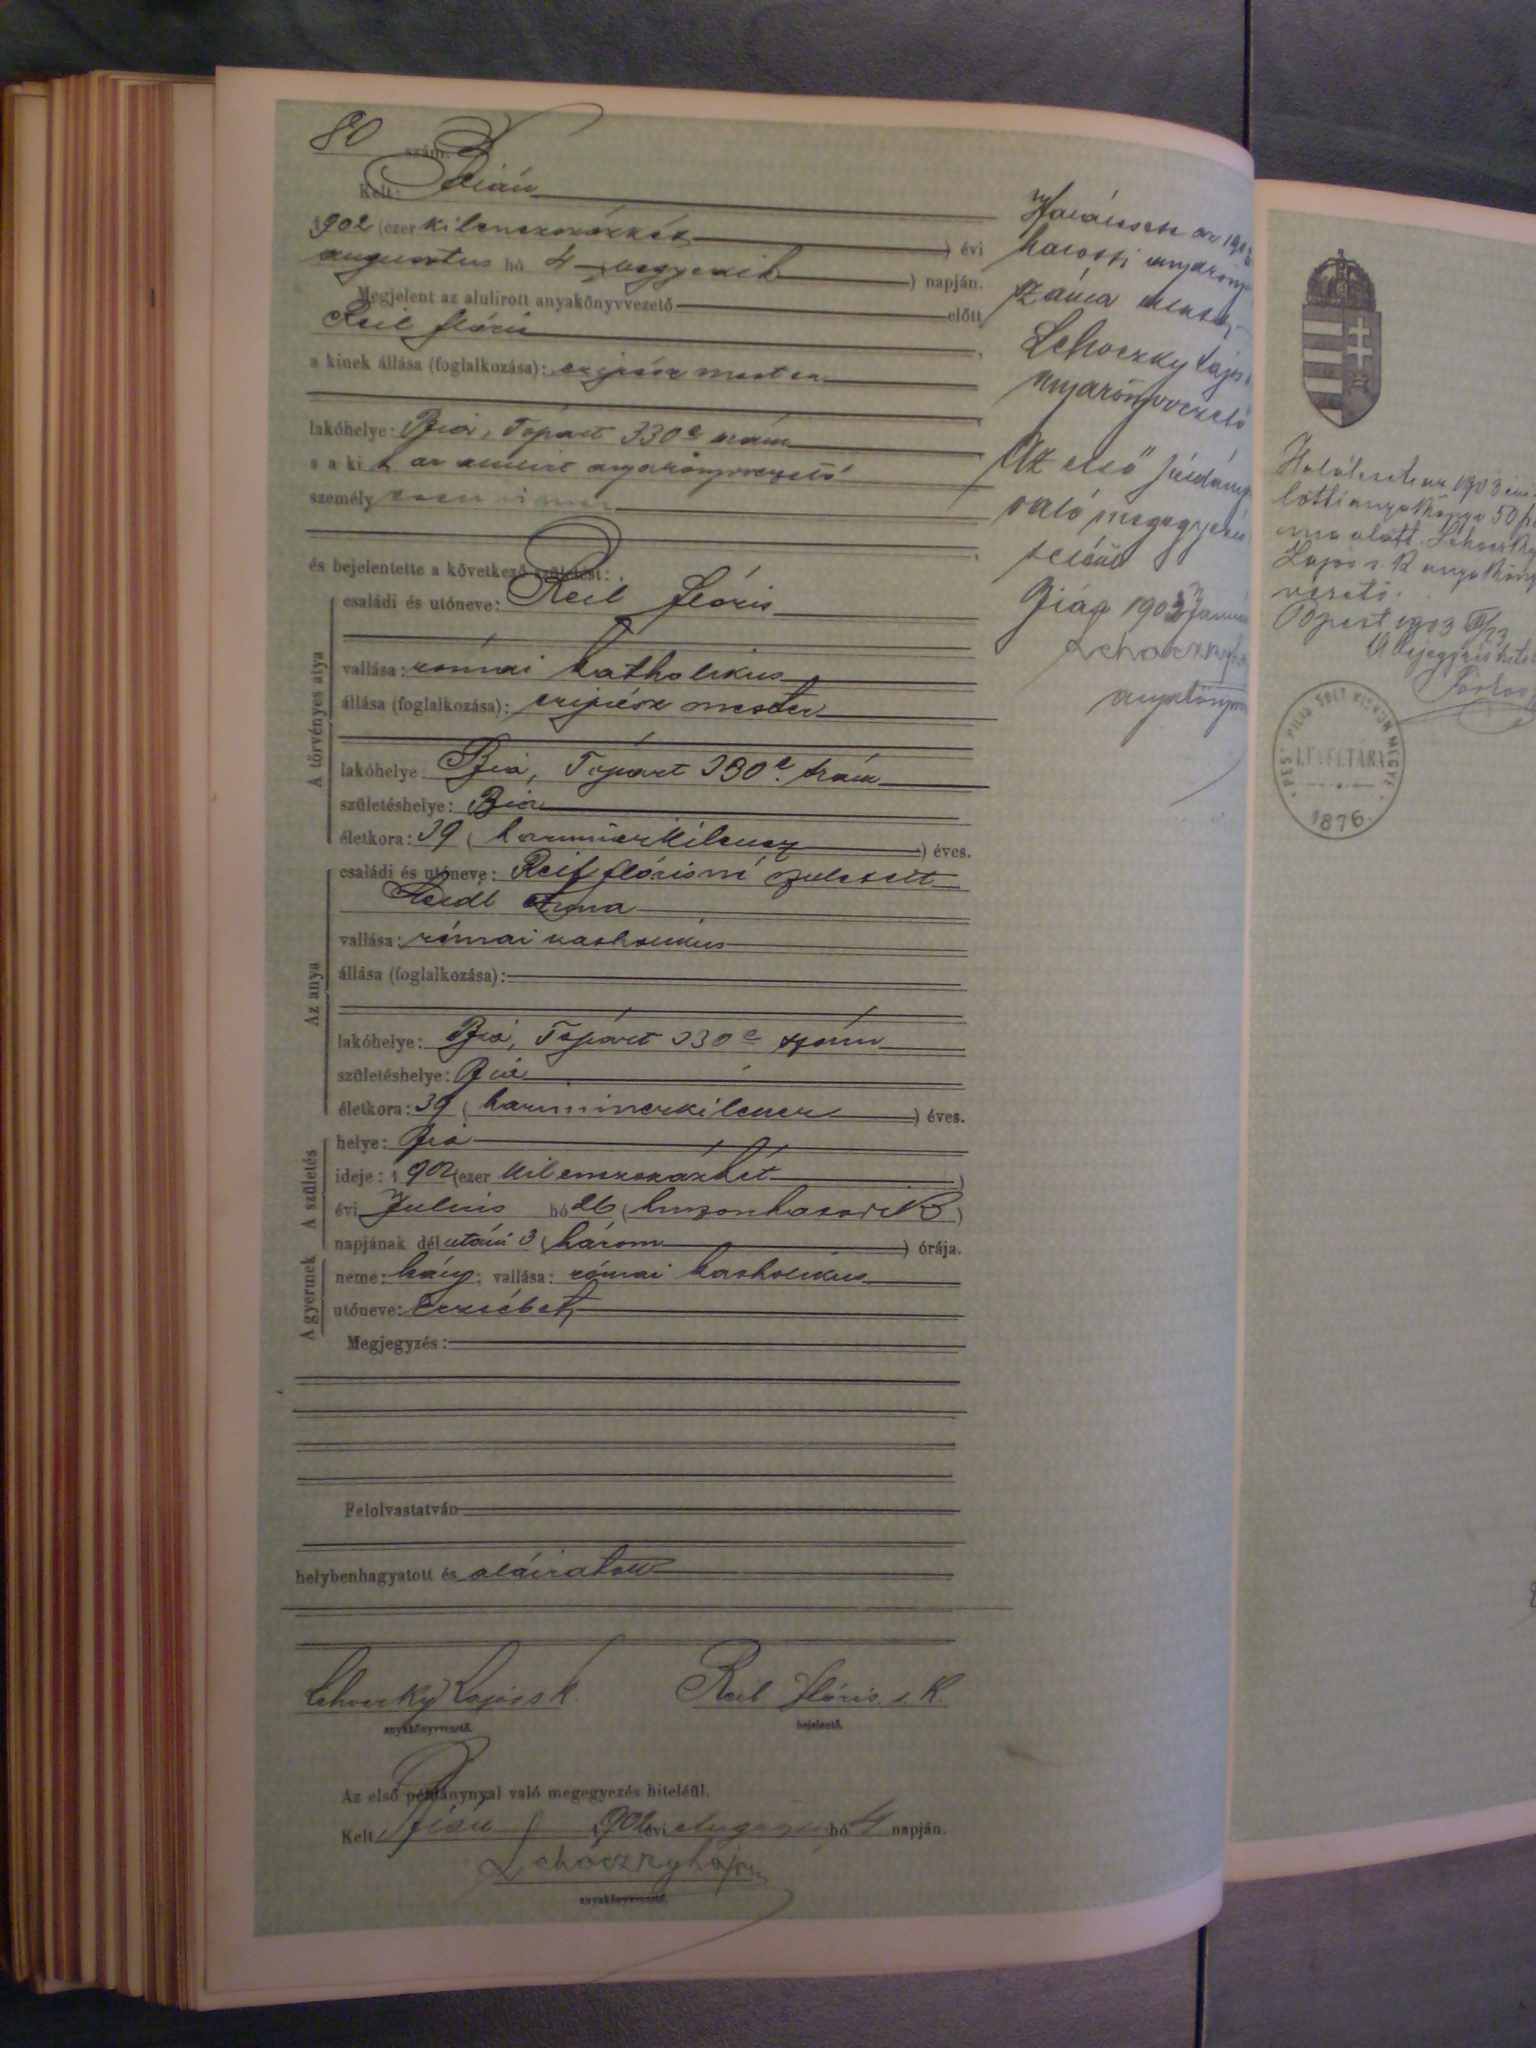 80 szám.
Kelt: Bián
1902 (ezer kilenczszázkét) évi
augusztus hó 4 (negyedik) napján.
Megjelent az alulirott anyakönyvvezető előtt
Reil Flóris
a kinek állása (foglalkozása): czipész mester
lakóhelye: Bia, Tópart 330 c szám
s a kit az alulirt anyakönyvvezető
személyesen ismer
és bejelentette a következő születést:
A törvényes atya
családi és utóneve: Reil Flóris
vallása: római katholikus
állása (foglalkozása): czipész mester
lakóhelye: Bia, Tópart 330 c. szám
születéshelye: Bia
életkora: 39 (harminczkilencz) éves.
Az anya
családi és utóneve: Reil Flórisné született
Anna
vallása: római katholikus
állása (foglalkozása):
lakóhelye: Bia, Tópart 330 c szám
születéshelye: Bia
életkora: 39 (harminczkilencz) éves.
A születés
helye: Bia
ideje: 1902 (ezer kilenczszázkét)
évi Julius hó 26 (huszonhatodik)
napjának délutáni 3 (három) órája.
A gyermek
neme: leány; vallása: római katholikus
utóneve: Erzsébet
Megjegyzés:
Felolvastatván
helybenhagyatott és aláiratott
Lehoczky Lajos s. k. Reil Flóris s. k.
anyakönyvvezető. bejelentő.
Az első példánynyal való megegyezés hiteléül.
Kelt Bián 1902 évi Augusztus hó 4 napján.
Lehoczky Lajos
anyakönyvvezető.
az 1903
szám alatt
Lehoczky Lajos
anyakönyvvezető
Az első
való megegyezés
hiteléül
Bián 1903
Lehoczky
Halálesete az 1903 évi
50
alatt. Lehoczky
Lajos s. k. anyakönyv
vezető.
Bpest 1903
PEST PILIS SOLT KISKUN MEGYE
LEVÉLTÁRA
1876